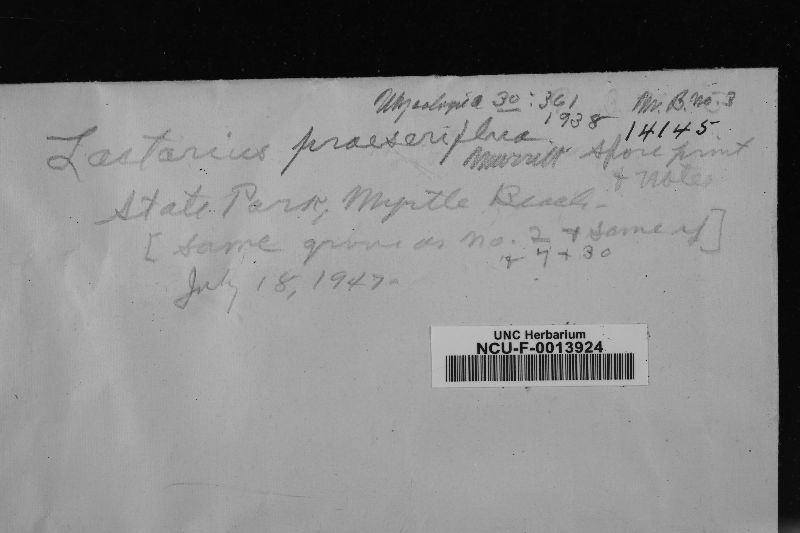 Mycologia 30:361 M. B. no. 3
1938 14145
Lactarius praeseriflua
Murrill spore print
+ notes
State Park, Myrtle Beach-
[same grove as no. 2 + same sp]
+ 4 + 30
July 18, 1947-
UNC Herbarium
NCU-F-0013924